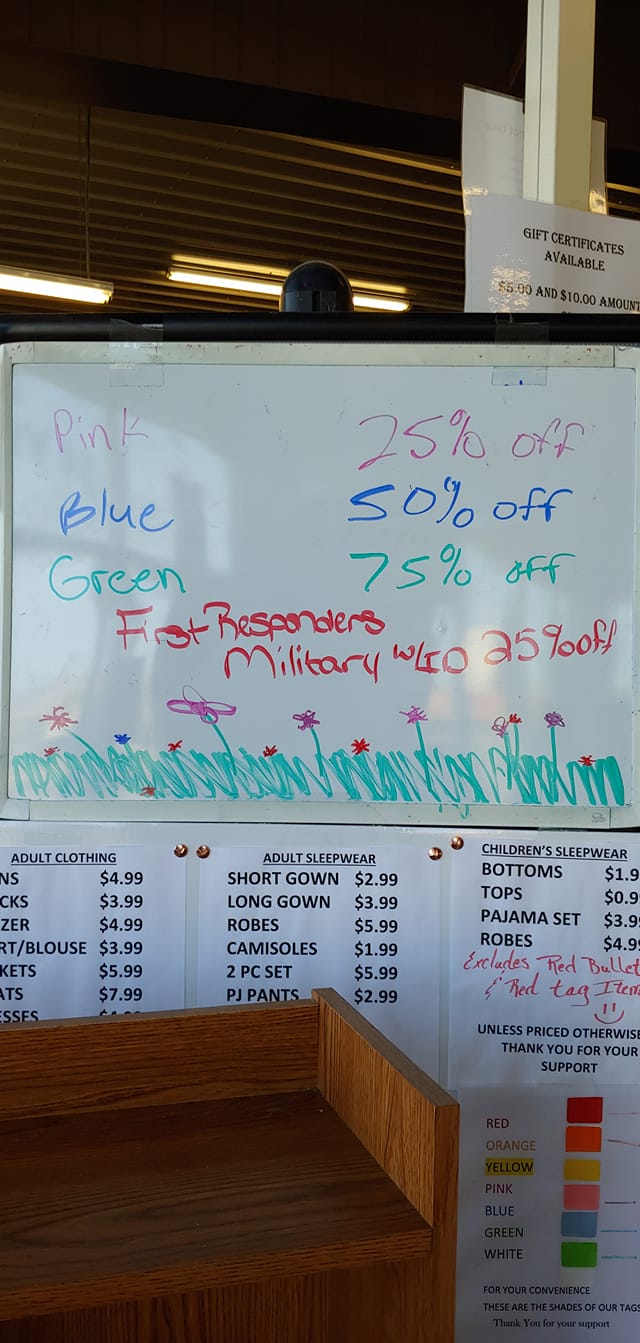 GIFT CERTIFICATES
AVAILABLE
$5.00 AND $10.00 AMOUNT
Pink 25% off
Blue 50% off
Green 75% off
First Responders
Military w/ID 25% off
ADULT CLOTHING
NS $4.99
CKS $3.99
ZER $4.99
RT/BLOUSE $3.99
KETS $5.99
ATS $7.99
ESSES
ADULT SLEEPWEAR
SHORT GOWN $2.99
LONG GOWN $3.99
ROBES $5.99
CAMISOLES $1.99
2 PC SET $5.99
PJ PANTS $2.99
CHILDREN'S SLEEPWEAR
BOTTOMS $1.9
TOPS $0.9
PAJAMA SET $3.9
ROBES $4.9
Excludes Red Bullet
& Red tag Item
UNLESS PRICED OTHERWISE
THANK YOU FOR YOUR
SUPPORT
RED
ORANGE
YELLOW
PINK
BLUE
GREEN
WHITE
FOR YOUR CONVENIENCE
THESE ARE THE SHADES OF OUR TAGS
Thank You for your support